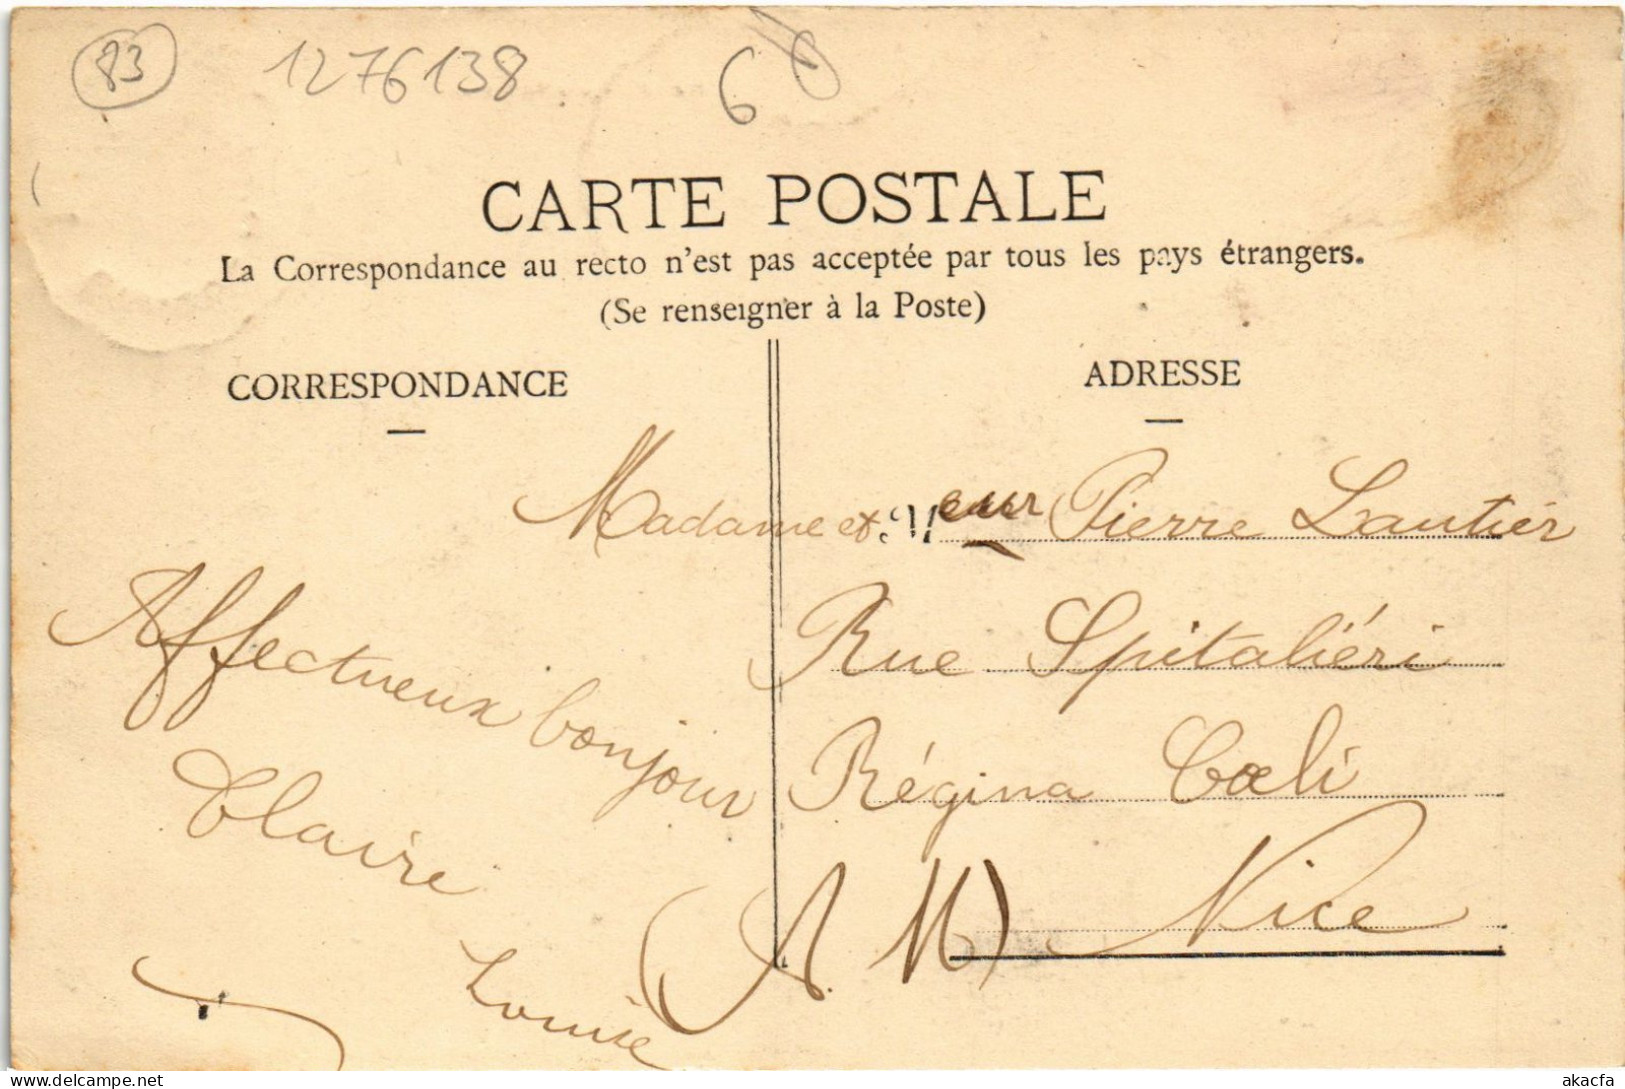 83 1276138 6
CARTE POSTALE
La Correspondance au recto n'est pas acceptée par tous les pays étrangers.
(Se renseigner à la Poste)
CORRESPONDANCE
ADRESSE
Madame et Meur Pierre Lautier
Rue Spitaliéri
Régina Cœli
(A. M) Nice
Affectueux bonjour
Claire
Louise
akacfa